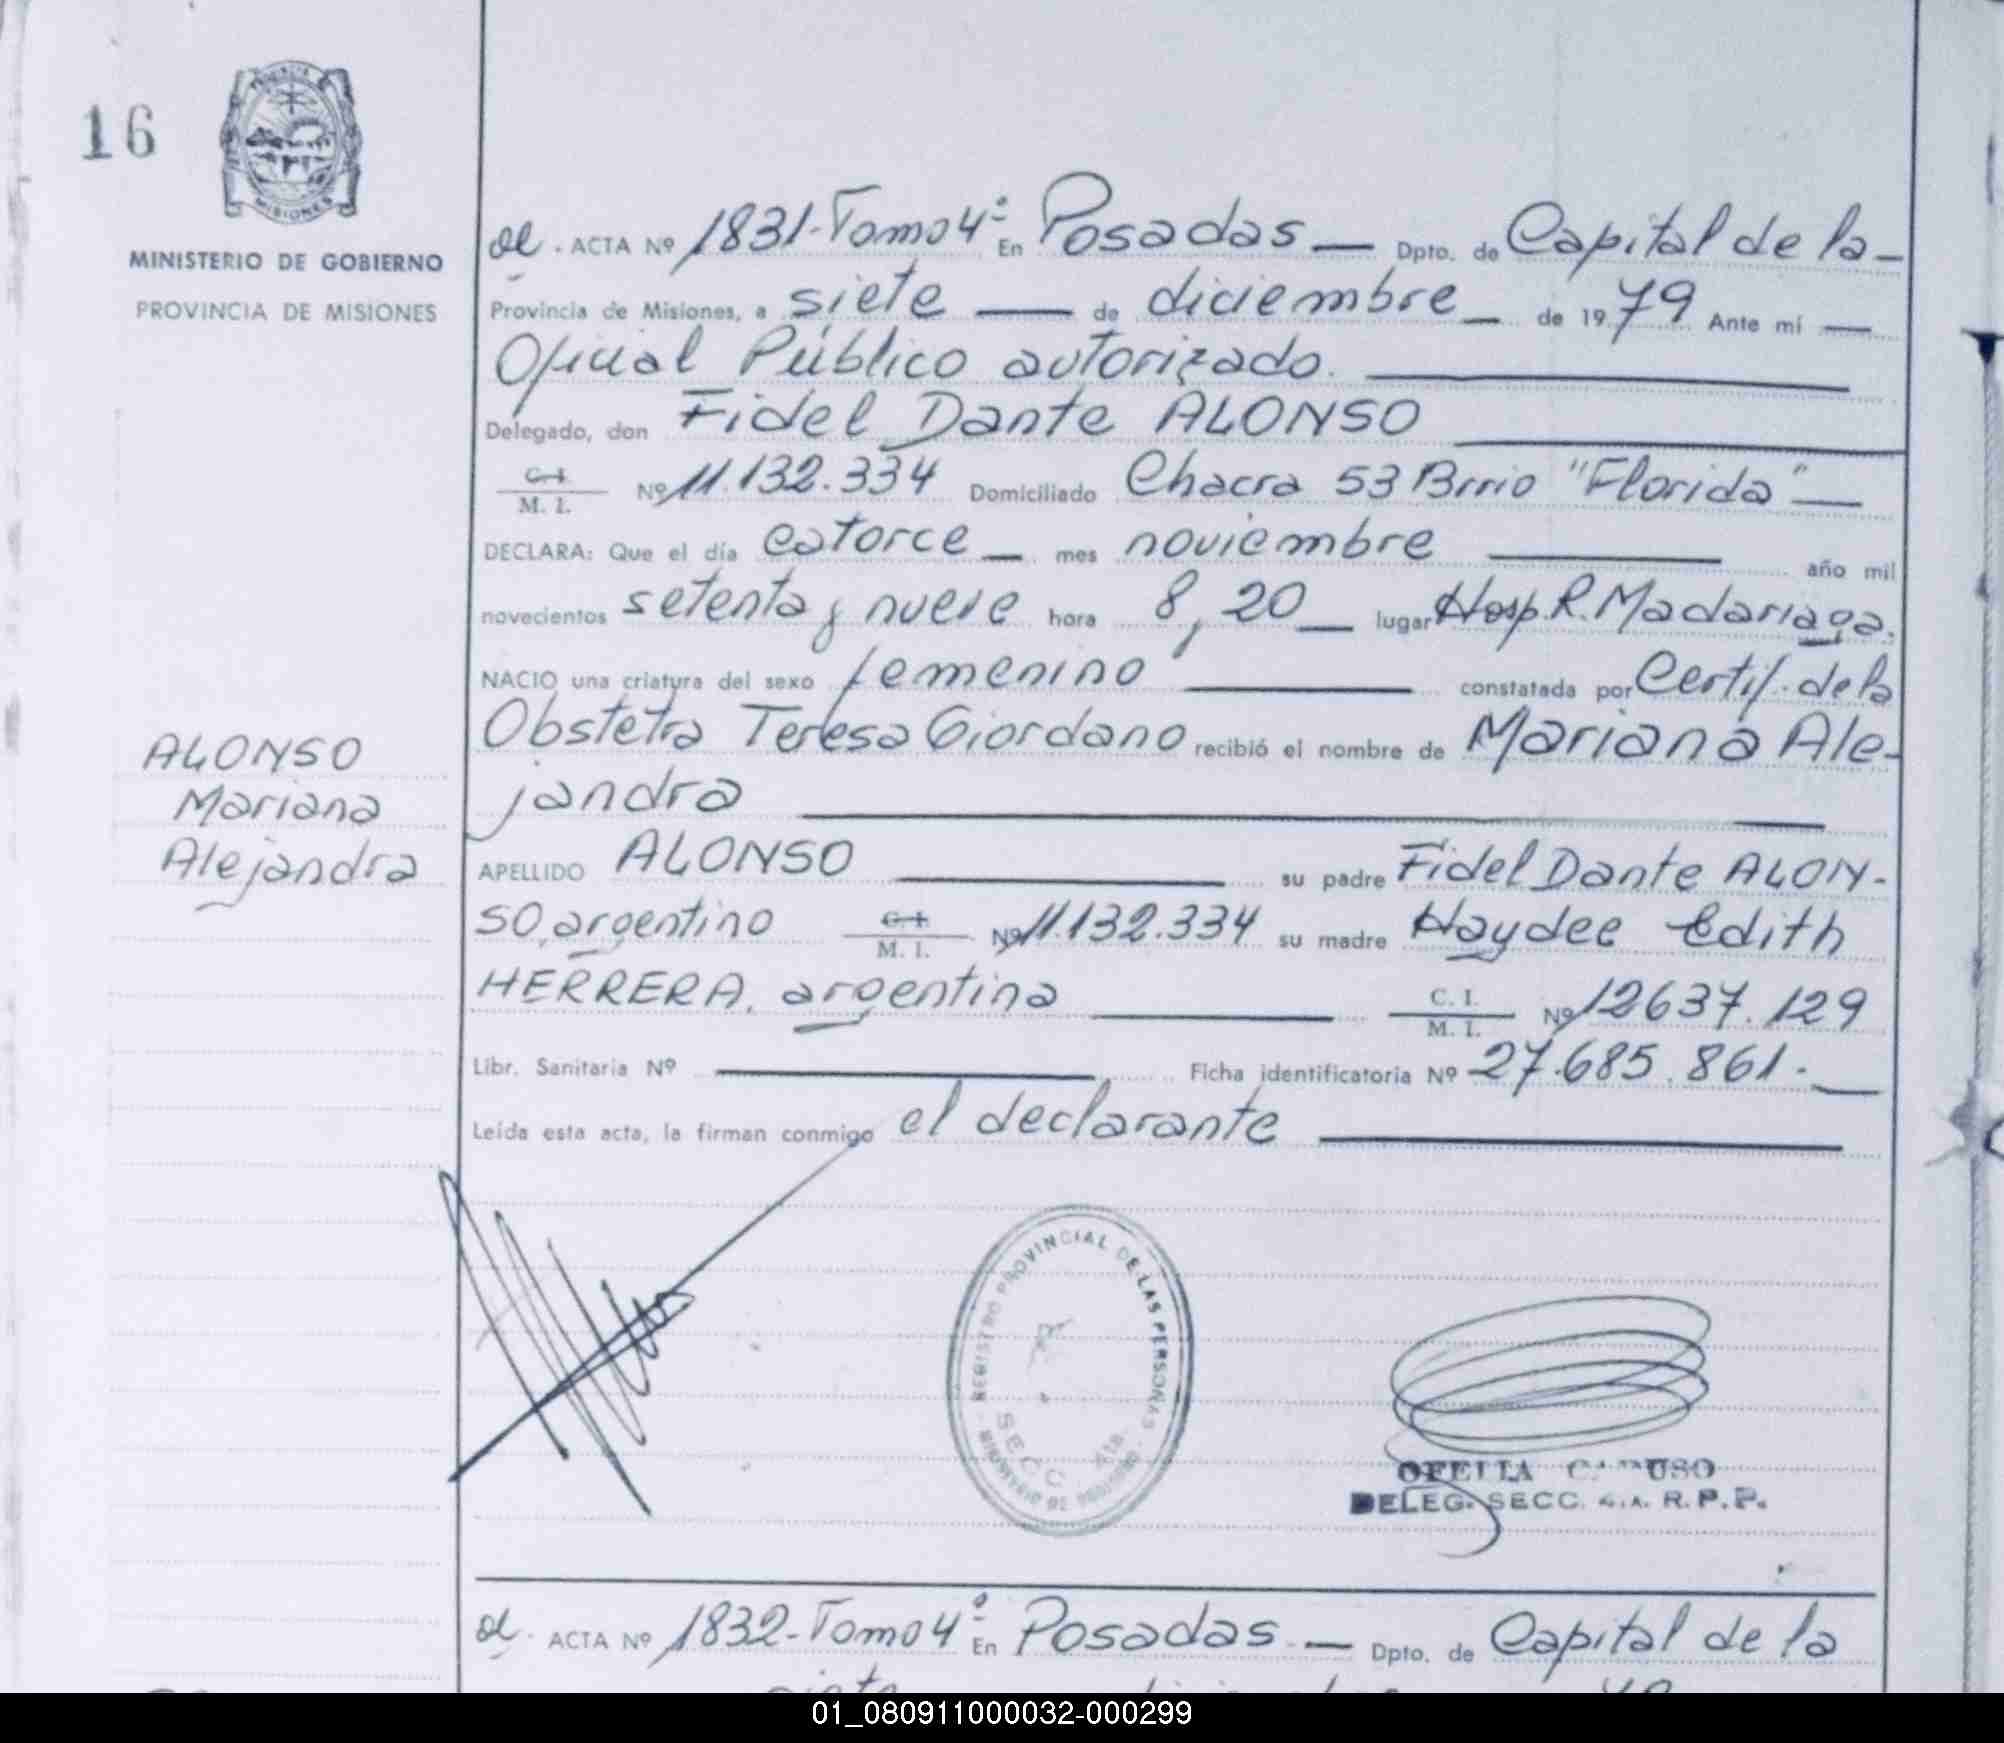 16
MISIONES
MINISTERIO DE GOBIERNO
PROVINCIA DE MISIONES
ALONSO
Mariana
Alejandra
ACTA Nº 1831-Tomo 4º En Posadas — Dpto. de Capital de la-
Provincia de Misiones, a siete — de diciembre — de 1979 Ante mí —
Oficial Público autorizado.
Delegado, don Fidel Dante ALONSO
C. I.
M. I. Nº 11.132.334 Domiciliado Chacra 53 Brrio "Florida" —
DECLARA: Que el día catorce — mes noviembre — año mil
novecientos setenta y nueve hora 8,20 — lugar Hosp. R. Madariaga.
NACIO una criatura del sexo femenino — constatada por Certif. de la
Obstetra Teresa Giordano recibió el nombre de Mariana Ale-
jandra
APELLIDO ALONSO — su padre Fidel Dante ALON-
SO, argentino C. I. M. I. Nº 11.132.334 su madre Haydee Edith
HERRERA, argentina — C. I. M. I. Nº 12637.129
Libr. Sanitaria Nº — Ficha identificatoria Nº 27.685.861.—
Leída esta acta, la firman conmigo el declarante —
REGISTRO PROVINCIAL DE LAS PERSONAS
SECC.
MINISTERIO DE GOBIERNO
OFELIA
DELEG. SECC. 4.A. R.P.P.
ACTA Nº 1832-Tomo 4º En Posadas — Dpto. de Capital de la
01_080911000032-000299